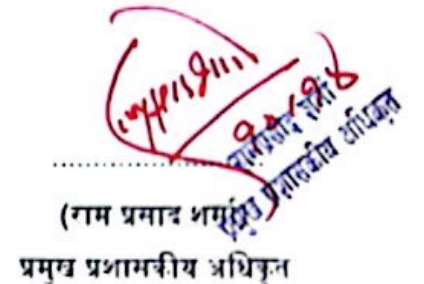 रामप्रसाद शर्मा
प्रमुख प्रशासकीय अधिकृत
....................................
(राम प्रसाद शर्मा)
प्रमुख प्रशासकीय अधिकृत